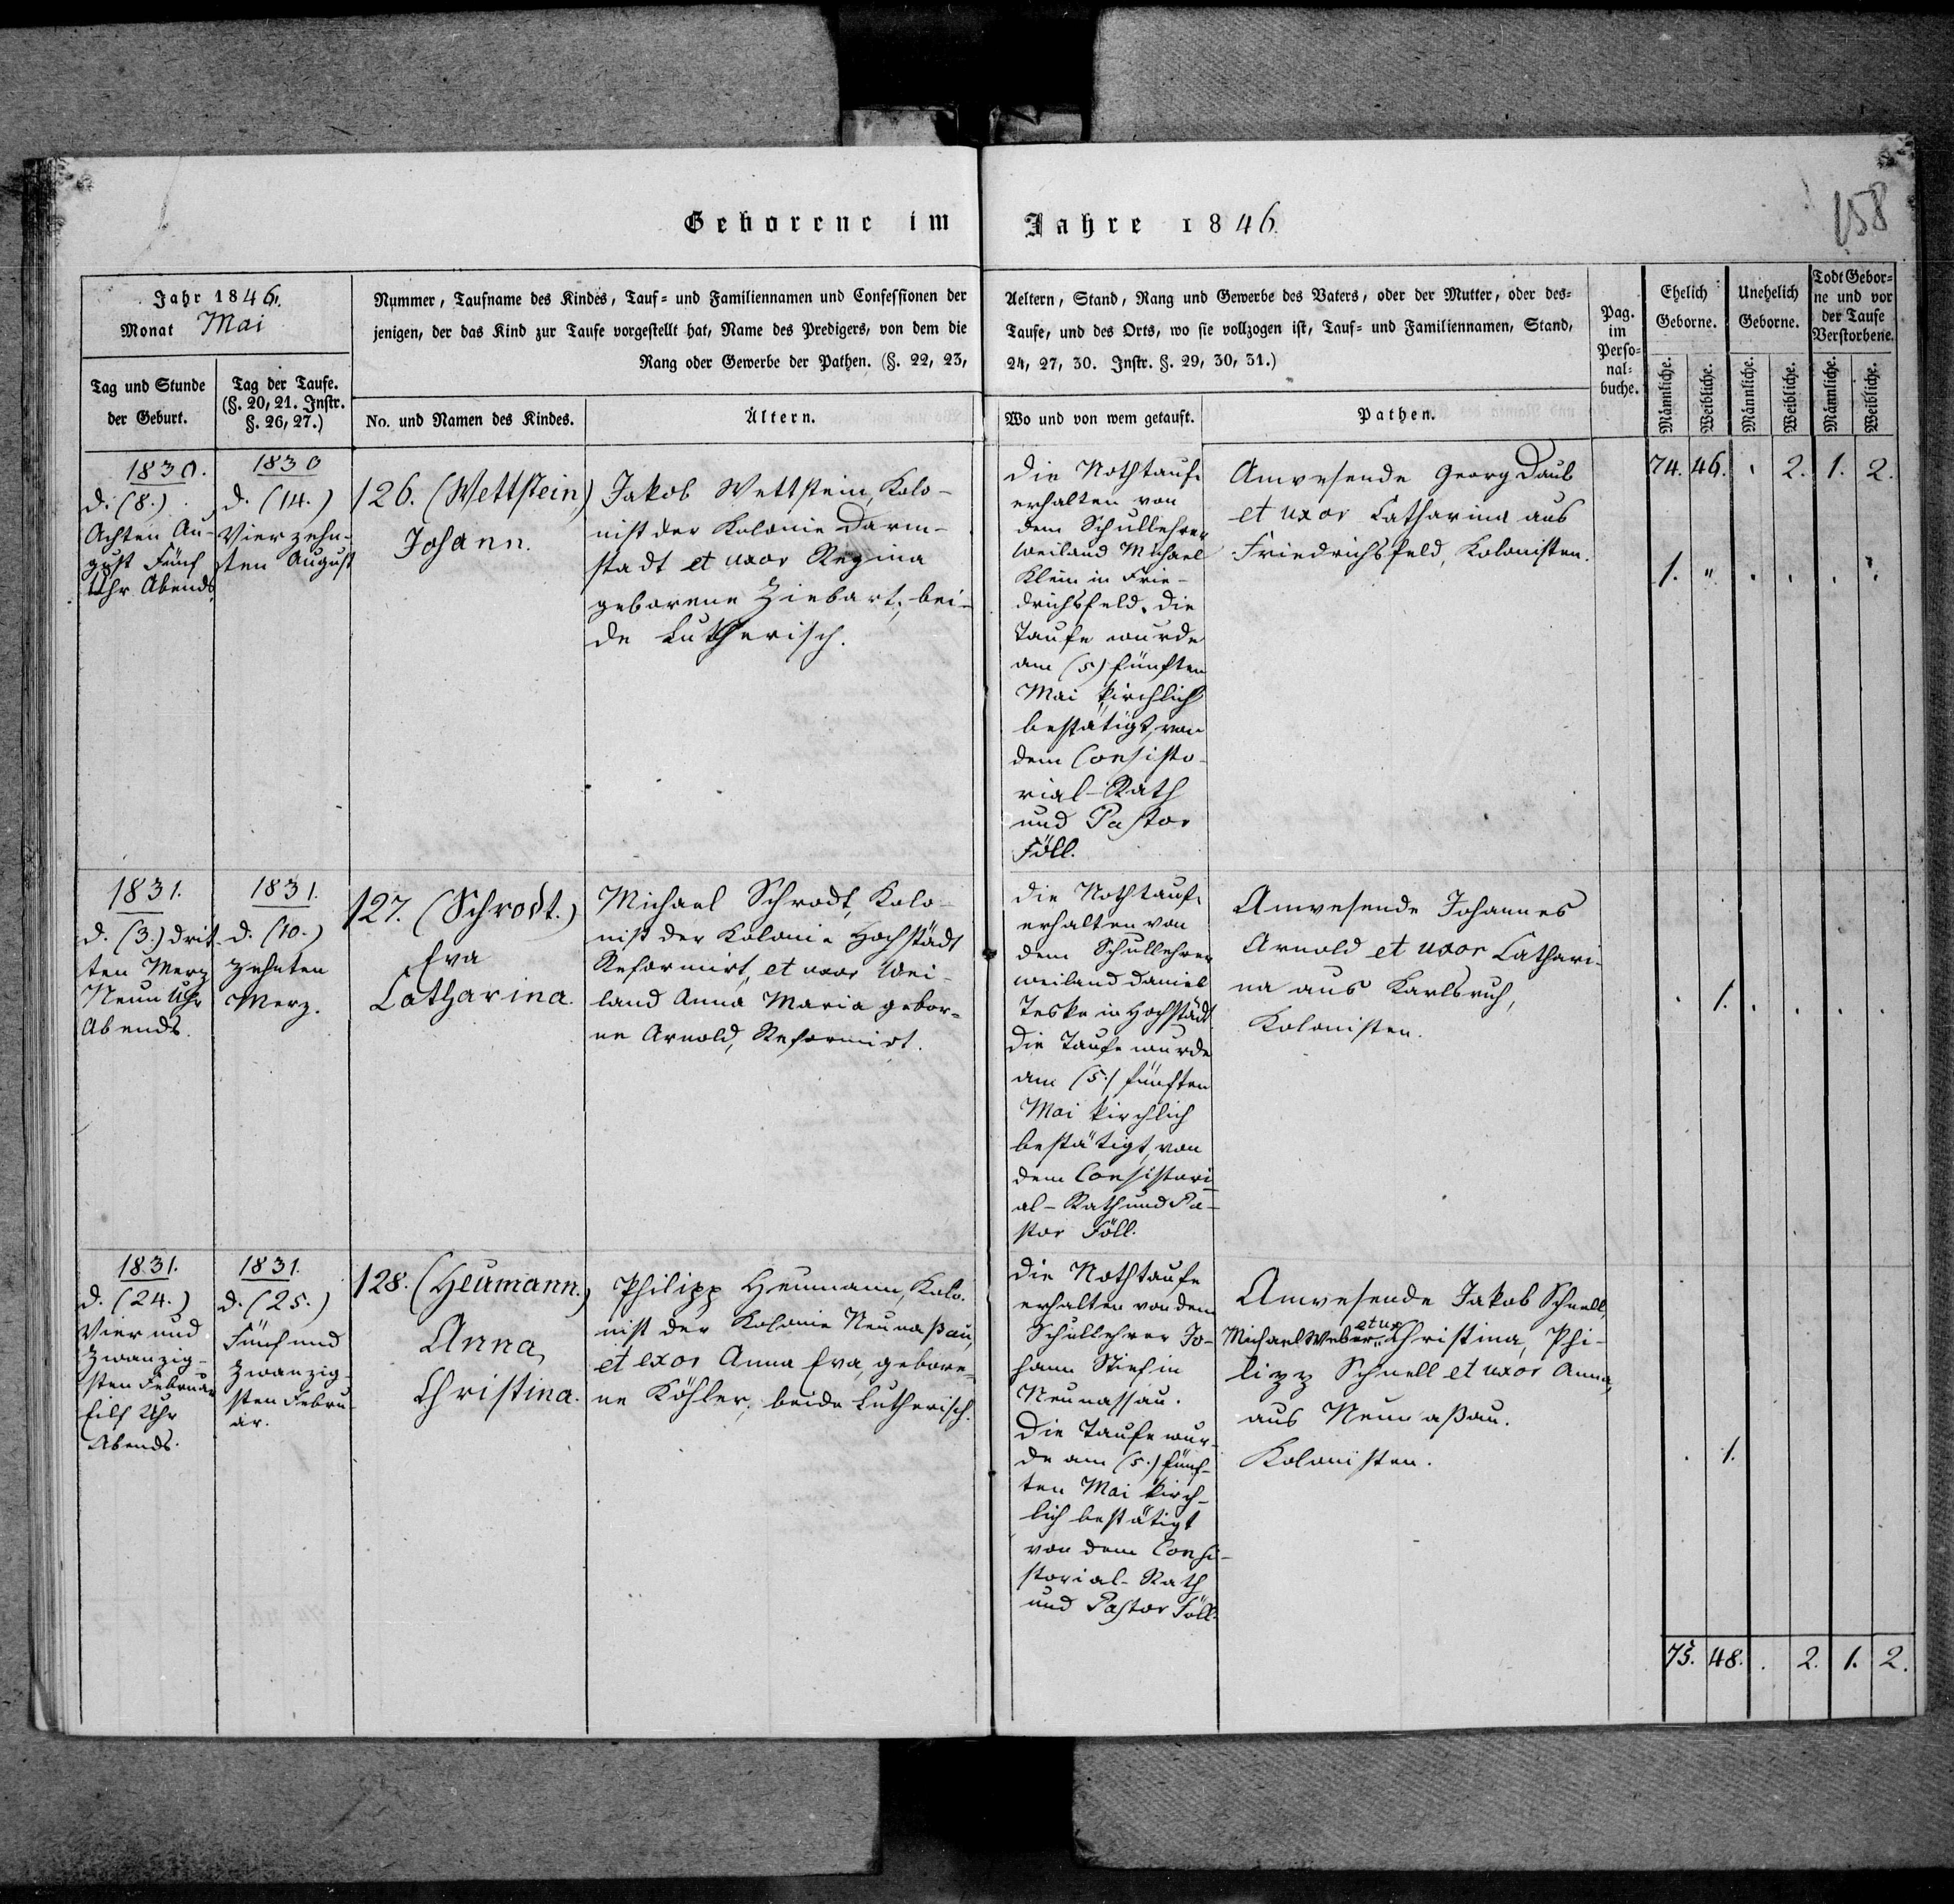 Geborene im Jahre 1846.
158
Jahr 1846.
Monat Mai
Nummer, Taufname des Kindes, Tauf= und Familiennamen und Confessionen der
jenigen, der das Kind zur Taufe vorgestellt hat, Name des Predigers, von dem die
Rang oder Gewerbe der Pathen. (§. 22, 23,
Aeltern, Stand, Rang und Gewerbe des Vaters, oder der Mutter, oder des=
Taufe, und des Orts, wo sie vollzogen ist, Tauf= und Familiennamen, Stand,
24, 27, 30. Instr. §. 29, 30, 31.)
Pag.
im
Perso=
nal=
buche.
Ehelich
Geborne.
Unehelich
Geborne.
Todt Gebor=
ne und vor
der Taufe
Verstorbene.
Tag und Stunde
der Geburt.
Tag der Taufe.
(§. 20, 21. Instr.
§. 26, 27.)
No. und Namen des Kindes.
Ältern.
Wo und von wem getauft.
Pathen.
Männliche.
Weibliche.
Männliche.
Weibliche.
Männliche.
Weibliche.
1830.
d. (8.)
Achten Au-
gust Fünf
Uhr Abends
1830
d. (14.)
Vierzehn-
ten August
126. (Wettstein,)
Johann.
Jakob Wettstein, Kolo-
nist der Kolonie Darm-
stadt et uxor Regina
geborene Ziebart, bei-
de Lutherisch.
Die Nothtaufe
erhalten von
dem Schullehrer
weiland Michael
Klein in Frie-
drichsfeld. Die
Taufe wurde
am (5) fünften
Mai kirchlich
bestätigt, von
dem Consisto-
rial-Rath
und Pastor
Föll.
Anwesende Georg Daub
et uxor Catharina aus
Friedrichsfeld, Kolonisten.
74. 46. . 2. 1. 2.
1. " . . . .
1831.
d. (3.) drit-
ten Merz
Neun Uhr
Abends.
1831.
d. (10.)
zehnten
Merz.
127. (Schrodt.)
Eva
Catharina.
Michael Schrodt, Kolo-
nist der Kolonie Hochstädt
Reformirt, et uxor wei-
land Anna Maria gebor-
ne Arnold, Reformirt.
Die Nothtaufe
erhalten von
dem Schullehrer
weiland Daniel
Teske in Hochstädt.
Die Taufe wurde
am (5.) fünften
Mai kirchlich
bestätigt, von
dem Consistori-
al-Rath und Pa-
stor Föll.
Anwesende Johannes
Arnold et uxor Cathari-
na aus Karlsruh,
Kolonisten.
. 1. . . . .
1831.
d. (24.)
Vier und
Zwanzig-
sten Februar
Eilf Uhr
Abends.
1831.
d. (25.)
Fünf und
Zwanzig-
sten Febru-
ar.
128. (Heumann.)
Anna,
Christina.
Philipp Heumann, Kolo-
nist der Kolonie Neunaßau,
et exor Anna Eva, gebore-
ne Köhler, beide Lutherisch.
Die Nothtaufe
erhalten von dem
Schullehrer Jo-
hann Stief in
Neunassau.
Die Taufe wur-
de am (5.) fünf-
ten Mai kirch-
lich bestätigt
von dem Consi-
storial-Rath
und Pastor Föll.
Anwesende Jakob Schnell,
Michael Weber et ux Christina, Phi-
lipp Schnell et uxor Anna,
aus Neunaßau.
Kolonisten.
. 1.
75. 48. . 2. 1. 2.